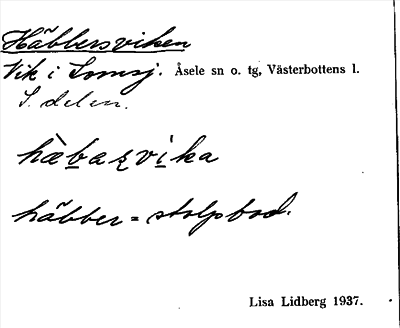 Häbbersviken
Vik i Lomsj. Åsele sn o. tg, Västerbottens l.
S. delen.
hæ̀baʂvika
häbber = stolpbod.
Lisa Lidberg 1937.